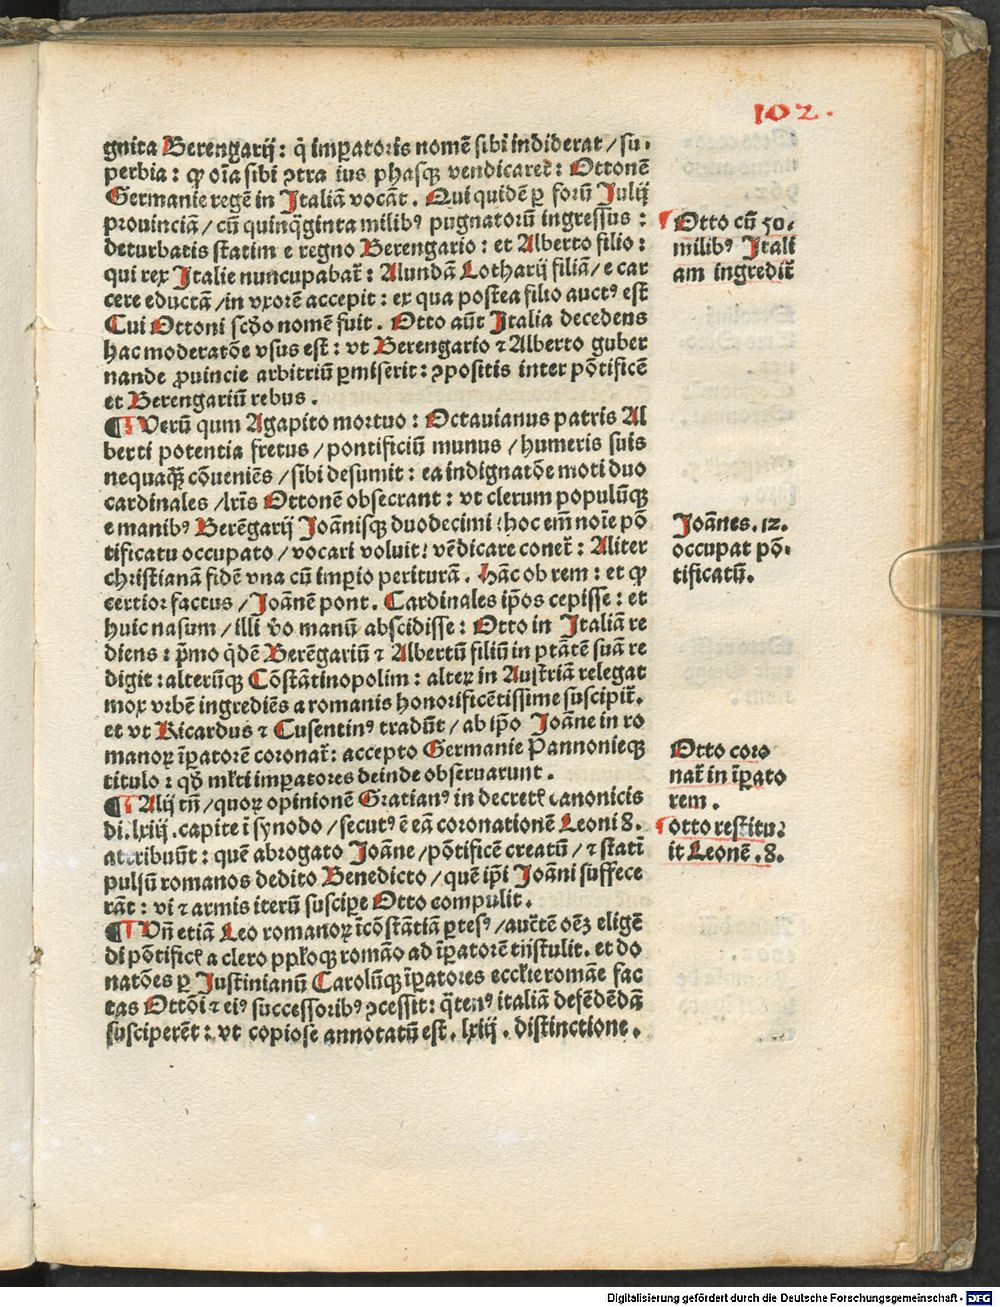 102.
gnita Berengarij: q̃ imꝑatoris nomẽ sibi indiderat / su⸗
perbia: ꝙ oĩa sibi ↄtra ius phasqꝫ vendicaret̃: Ottonẽ
Germanie regẽ in Italiã vocãt. Qui quidẽ ꝑ forũ Julij
prouinciã / cũ quinq̃ginta milibꝰ pugnatorũ ingressus:
deturbatis statim e regno Berengario: et Alberto filio:
qui rex Italie nuncupabat̃: Alundã Lotharij filiã / e car
cere eductã / in vxorẽ accepit: ex qua postea filio auctꝰ est
Cui Ottoni scd̃o nomẽ fuit. Otto aũt Italia decedens
hac moderatõe vsus est: vt Berengario ⁊ Alberto guber
nande ꝓuincie arbitriũ ꝑmiserit: ↄpositis inter põtificẽ
et Berengariũ rebus.
¶ Verũ qum Agapito mortuo: Octauianus patris Al
berti potentia fretus / pontificiũ munus / humeris suis
nequaqꝫ̃ cõueniẽs / sibi desumit: ea indignatõe moti duo
cardinales / lr̃is Ottonẽ obsecrant: vt clerum populũqꝫ
e manibꝰ Berẽgarij Joãnisqꝫ duodecimi (hoc em̃ noĩe põ
tificatu occupato / vocari voluit) vẽdicare conet̃: Aliter
christianã fidẽ vna cũ imꝑio periturã. Hãc ob rem: et ꝙ
certior factus / Joãnẽ pont. Cardinales ip̃os cepisse: et
huic nasum / illi v̊o manũ abscidisse: Otto in Italiã re
diens: p̃mo q̃dẽ Berẽgariũ ⁊ Albertũ filiũ in ptãtẽ suã re
digit: alterũqꝫ Cõstãtinopolim: alteꝝ in Austriã relegat
mox vrbẽ ingrediẽs a romanis honorificẽtissime suscipit̃.
et vt Ricardus ⁊ Cusentinꝰ tradũt / ab ip̃o Joãne in ro
manoꝝ ĩꝑatorẽ coronat̃: accepto Germanie Pannonieqꝫ
titulo: qd̃ ml̃ti imꝑatores deinde obseruarunt.
¶ Alij tñ / quoꝝ opinionẽ Gratianꝰ in decret̃ canonicis
di. lxiij. capite ĩ synodo / secutꝰ ẽ eã coronationẽ Leoni 8.
attribuũt: quẽ abrogato Joãne / põtificẽ creatũ / ⁊ statĩ
pulsũ romanos dedito Benedicto / quẽ ip̃i Joãni suffece
rãt: vi ⁊ armis iterũ suscipe Otto compulit.
¶ Vñ etiã Leo romanoꝝ ĩcõstãtiã ꝑtesꝰ / auct̃tẽ oẽꝫ eligẽ
di põtific̃ a clero pplõqꝫ romão ad ĩꝑatorẽ trñstulit. et do
natões ꝑ Justinianũ Carolũqꝫ ĩꝑatores eccl̃ie romãe fac
tas Ottõi ⁊ eiꝰ successoribꝰ ↄcessit: q̃tenꝰ italiã defẽdẽdã
susciperẽt: vt copiose annotatũ est. lxiij. distinctione.
Otto cũ 50.
milibꝰ Itali
am ingredit̃
Joãnes. 12.
occupat põ⸗
tificatũ.
Otto coro
nat̃ in ĩꝑato
rem.
otto restitu⸗
it Leonẽ. 8.
Digitalisierung gefördert durch die Deutsche Forschungsgemeinschaft - DFG